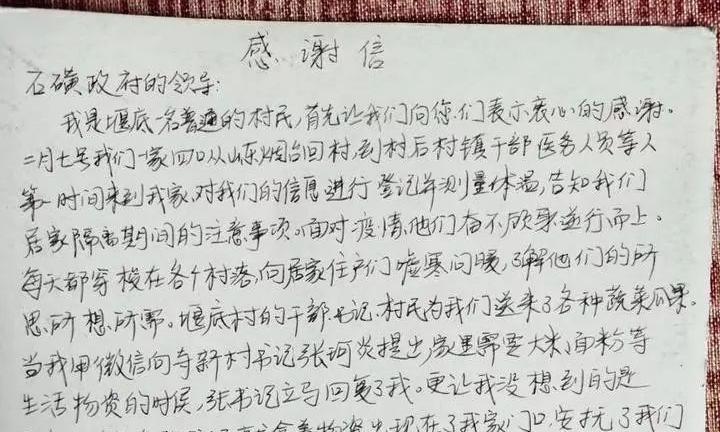 感谢信
石磺政府的领导:
我是堰底一名普通的村民,首先让我们向你们表示衷心的感谢。
二月七号我们一家四口从山东烟台回村,到村后村镇干部医务人员等人
第一时间来到我家,对我们的信息进行登记并测量体温,告知我们
居家隔离期间的注意事项。面对疫情,他们奋不顾身逆行而上。
每天都穿梭在各个村落,向居家住户们嘘寒问暖,了解他们的所
思所想所需。堰底村的干部书记、村民为我们送来了各种蔬菜瓜果。
当我用微信向寺新村书记张珂炎提出家里需要大米、面粉等
生活物资的时侯,张书记立马回复了我。更让我没想到的是
物资出现在了我家门口,安抚了我们